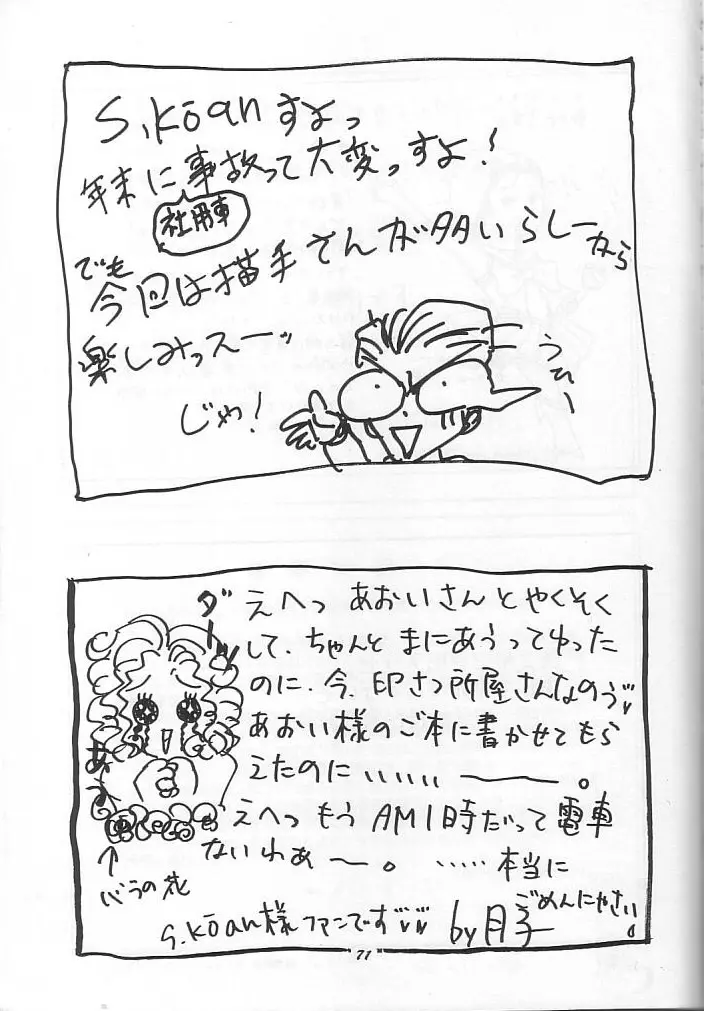 S.Kōanすよっ
年末に事故って大変っすよ!
社用車
でも
今回は描手さんが多いらしーから
楽しみっスーッ
じゃ!
うひー
えへっ あおいさんとやくそく
して、ちゃんと まにあうってゆった
のに、今、印さつ所屋さんなのぅ
あおい様のご本に書かせてもら
えたのに、、、、、 ―――。
えへっ もう AM1時だって電車
ないわぁ ―。 ‥‥‥本当に
ごめんにゃさい。
S.Kōan様ファンです by月子
ダーッ
あぅ
↑
バラの花
77